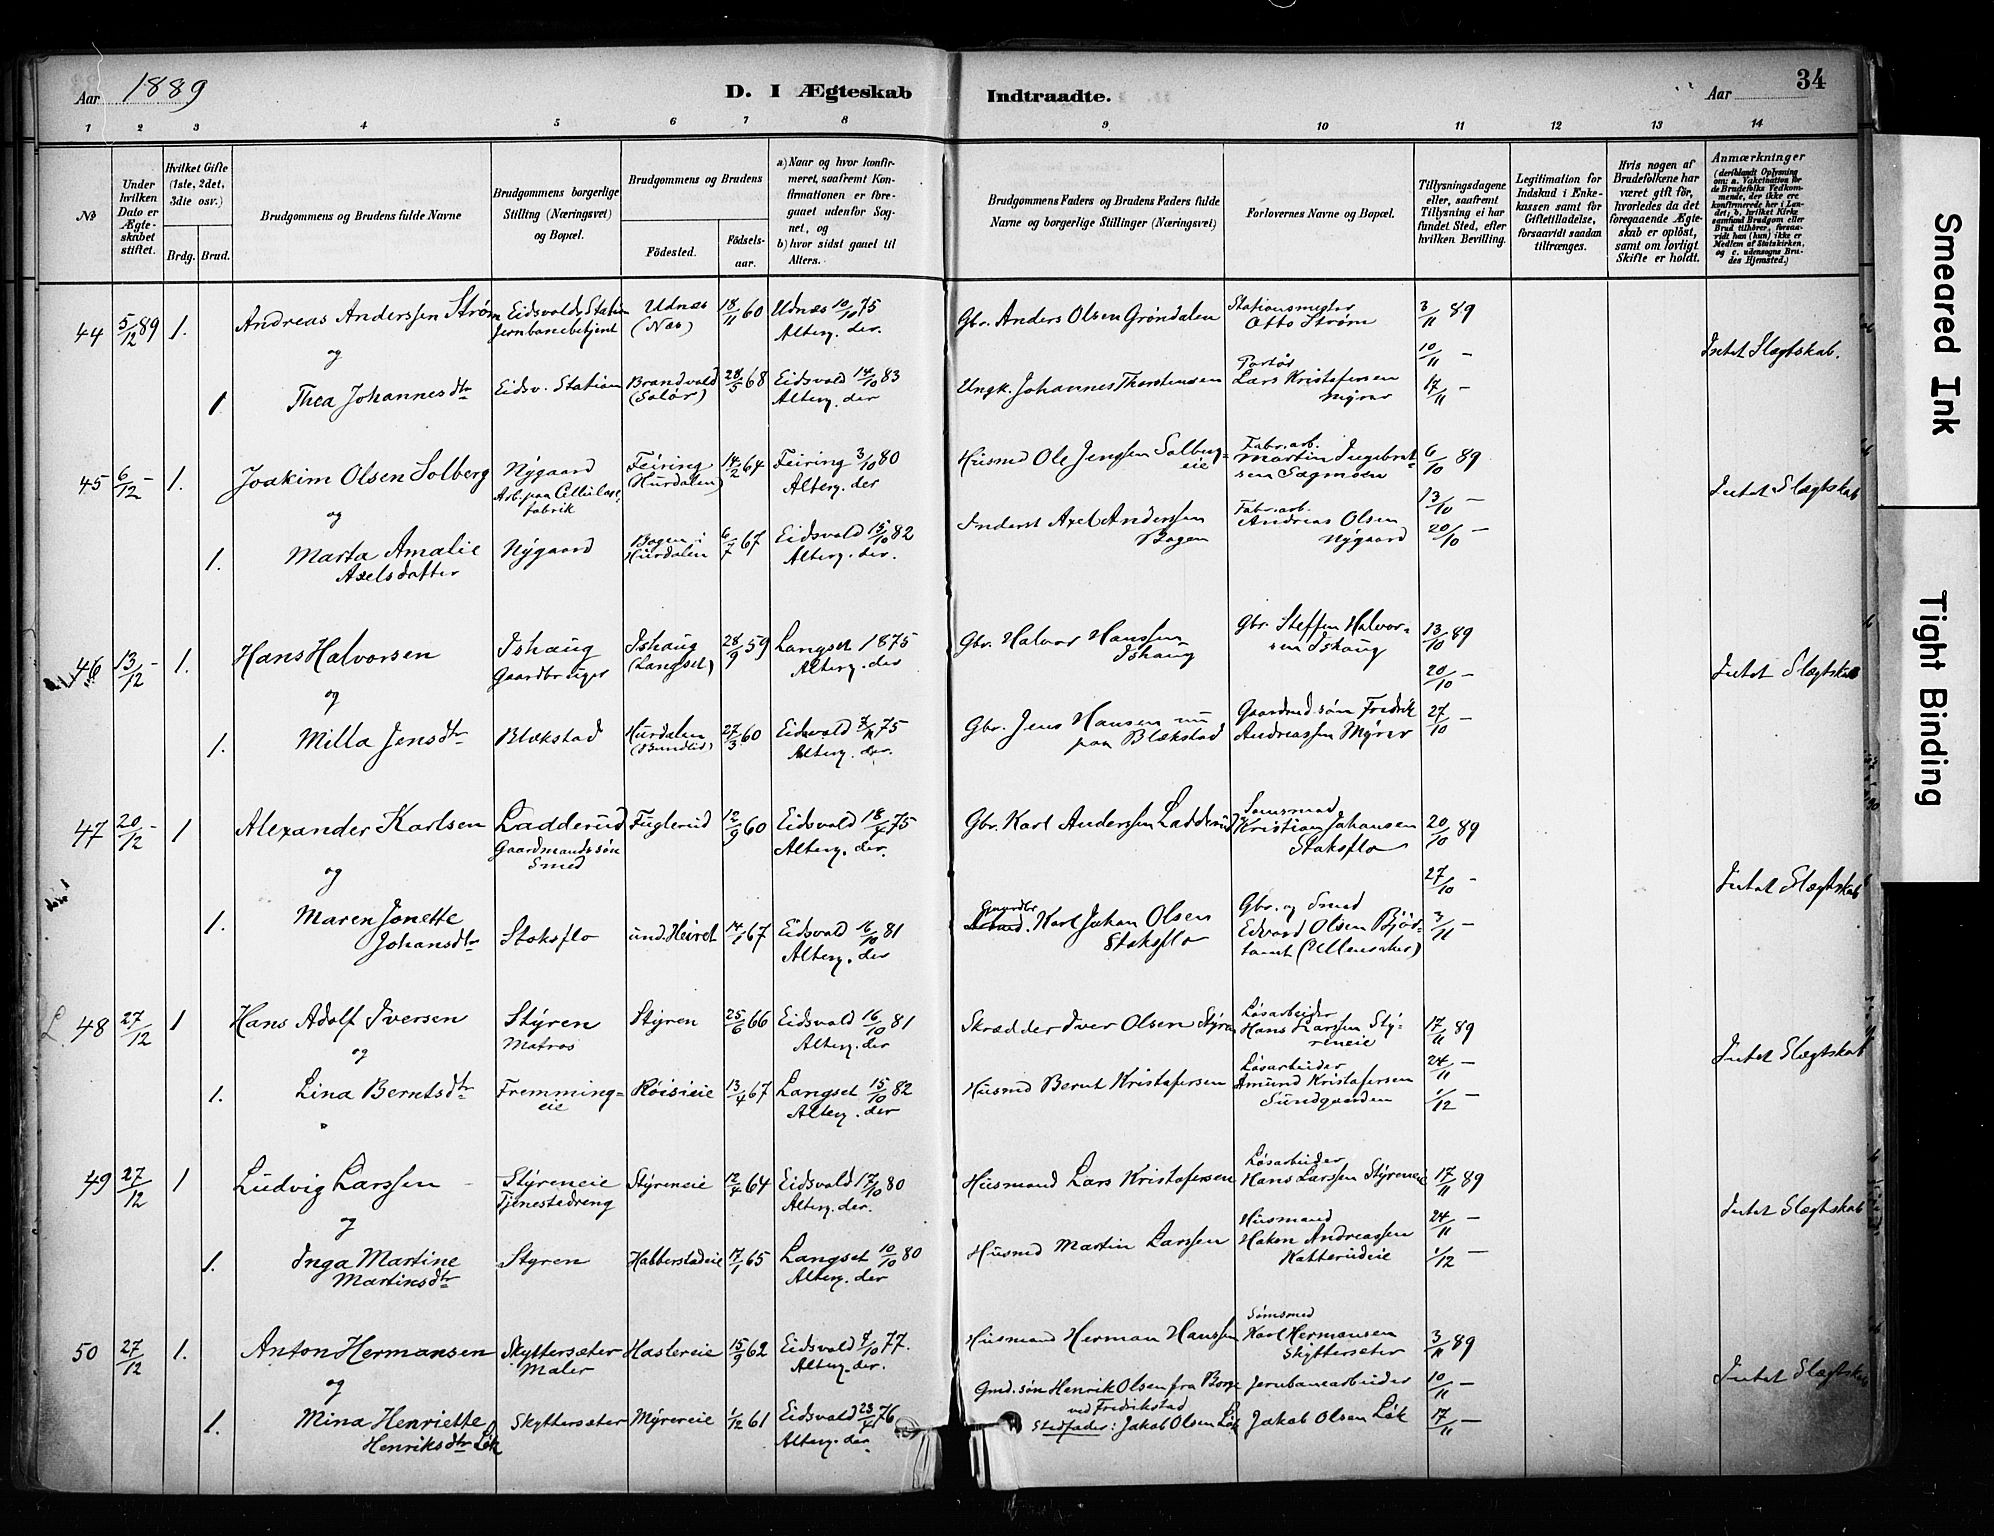 Aar 1889
D. I Ægteskab
Indtraadte.
Aar
34
1 2 3 4 5 6 7 8 9 10 11 12 13 14
No
Under hvilken Dato er Ægteskabet stiftet.
Hvilket Gifte (1ste, 2det, 3dte osv.)
Brdg. Brud.
Brudgommens og Brudens fulde Navne
Brudgommens borgerlige Stilling (Næringsvei) og Bopæl.
Brudgommens og Brudens
Fødested.
Fødselsaar.
a) Naar og hvor konfirmeret, saafremt Konfirmationen er foregaaet udenfor Sognet, og
b) hvor sidst gaaet til Alters.
Brudgommens Faders og Brudens Faders fulde Navne og borgerlige Stillinger (Næringsvei)
Forlovernes Navne og Bopæl.
Tillysningsdagene eller, saafremt Tillysning ei har fundet Sted, efter hvilken Bevilling.
Legitimation for Indskud i Enkekassen samt for Giftetilladelse, forsaavidt saadan tiltrænges.
Hvis nogen af Brudefolkene har været gift før, hvorledes da det foregaaende Ægteskab er opløst, samt om lovligt Skifte er holdt.
Anmærkninger (deriblandt Oplysning om: a. Vakcination for de Brudefolks Vedkommende, der ikke ere konfirmerede her i Landet; b. hvilket Kirkesamfund Brudgom eller Brud tilhører, forsaavidt han (hun) ikke er Medlem af Statskirken, og c. udensogns Brudes Hjemsted.)
44 5/12 89 1. Andreas Anderssen Strøm Eidsvolds Station Jernbanebetjent Udnæs (Næs) 18/11 60 Udnæs 10/10 75 Alterg. der. Gbr. Anders Olsen Grøndalen Stationsmester Otto Strøm 3/11 89
og 10/11 – Intet Slægtskab.
1. Thea Johannesdtr Eidsv. Station Brandvold (Solør) 28/5 68 Eidsvold 14/10 83 Alterg. der Ungk. Johannes Thorstensen Portør Lars Kristofersen Myrer 17/11 –
45 6/12 – 1. Joakim Olsen Solberg Nygaard Arb. paa Cellulosefabrik Feiring (Hurdalen) 14/2 64 Feiring 3/10 80 Alterg. der Husmd Ole Jensen Solbergeie Fabr.arb. Martin Ingebretsen Sagmoen 6/10 89
og 13/10 – Intet Slægtskab
1. Marta Amalie Axelsdatter Nygaard Bogen i Hurdalen 6/7 67 Eidsvold 15/10 82 Alterg. der. Inderst Axel Anderssen Bogen Fabr.arb. Andreas Olsen Nygaard 20/10 –
46 13/12 – 1. Hans Halvorsen Ishaug Gaardbruger Ishaug (Langset) 28/9 59 Langset 1875 Alterg. der Gbr. Halvor Hanssen Ishaug Gbr. Steffen Halvorsen Ishaug 13/10 89
og 20/10 – Intet Slægtskab
1. Milla Jensdtr Blekstad Hurdalen 27/3 60 Eidsvold 75 Alterg. der. Gbr. Jens Hansen nu paa Blekstad Gaardmd.søn Fredrik Andreassen Myrer 27/10 –
47 20/12 – 1 Alexander Karlsen Ladderud Gaardmandssøn Smed Fuglerud 12/9 60 Eidsvold 18/4 75 Alterg. der. Gbr. Karl Anderssen Ladderud Kristian Johansen Stoksflo 20/10 89
og 27/10 – Intet Slægtskab
1. Maren Jonette Johansdtr Stoksflo und. Heiret 14/1 67 Eidsvold 16/10 81 Alterg. der Gaardbr. Karl Johan Olsen Stoksflo Gbr. og Smed Edvard Olsen (Ullensaker) 3/11 –
48 27/12 1 Hans Adolf Iversen Styren Matros Styren 25/6 66 Eidsvold 16/10 81 Alterg. der Skrædder Iver Olsen Styren Løsarbeider Hans Larssen Styreneie 17/11 89
og 24/11 – Intet Slægtskab
1. Lina Berntsdtr Fremmingeie Røisieie 13/4 67 Langset 15/10 82 Alterg. der Husmd Bernt Kristofersen Løsarbeider Amund Kristofersen Sundgaarden 1/12 –
49 27/12 1 Ludvig Larssen Styreneie Tjenestedreng Styreneie 12/4 64 Eidsvold 17/10 80 Alterg. der. Husmand Lars Kristofersen Løsarbeider Hans Larssen Styreneie 17/11 89
og 24/11 – Intet Slægtskab
1. Inga Martine Martinsdtr Styren Habberstadeie 17/1 65 Langset 10/10 80 Alterg. der Husmd Martin Larssen Husmand Haken Andreassen Katterudeie 1/12 –
50 27/12 1. Anton Hermansen Skyttersæter Maler Haslereie 15/9 62 Eidsvold 7/10 77. Alterg. der. Husmand Herman Hanssen Sømsmed Karl Hermansen Skyttersæter 3/11 89
og 10/11 – Intet Slægtskab
1. Mina Henriette Henriksdtr Løk Skyttersæter Myrereie 1/12 61 Eidsvold 23/4 76 Alterg. der. Gmd.søn Henrik Olsen fra Borge ved Fredrikstad Stedfader: Jakob Olsen Løk Jernbanearbeider Jakob Olsen Løk 17/11 –
Smeared Ink
Tight Binding